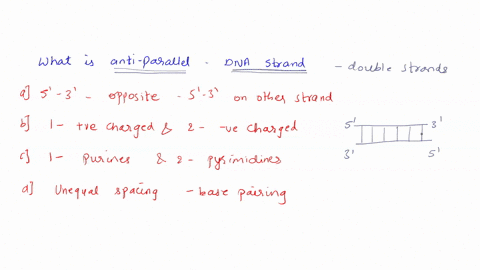 What is anti-parallel - DNA strand - double strands
a] 5'-3' - opposite - 5'-3' on other strand
b] 1- +ve charged & 2- -ve charged
c] 1- purines & 2- pyrimidines
d] Unequal spacing - base pairing
5' 3'
3' 5'